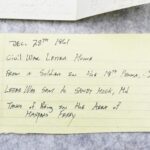 Dec. 28th 1861
Civil War Letter Home
From a Soldier in the 18th
Letter Was Sent to Sandy Hook, Md
Talks of Being in the Area of
Harpers Ferry